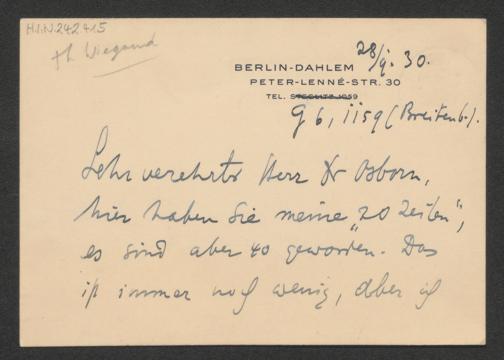 H.I.N. 242.415
Th Wiegand
28/9. 30.
BERLIN-DAHLEM
PETER-LENNÉ-STR. 30
TEL. STEGLITZ 1059
G 6, 1159 (Breitenb.).
Sehr verehrter Herr Dr Osborn,
hier haben Sie meine „20 Zeilen",
es sind aber 40 geworden. Das
ist immer noch wenig, aber ich